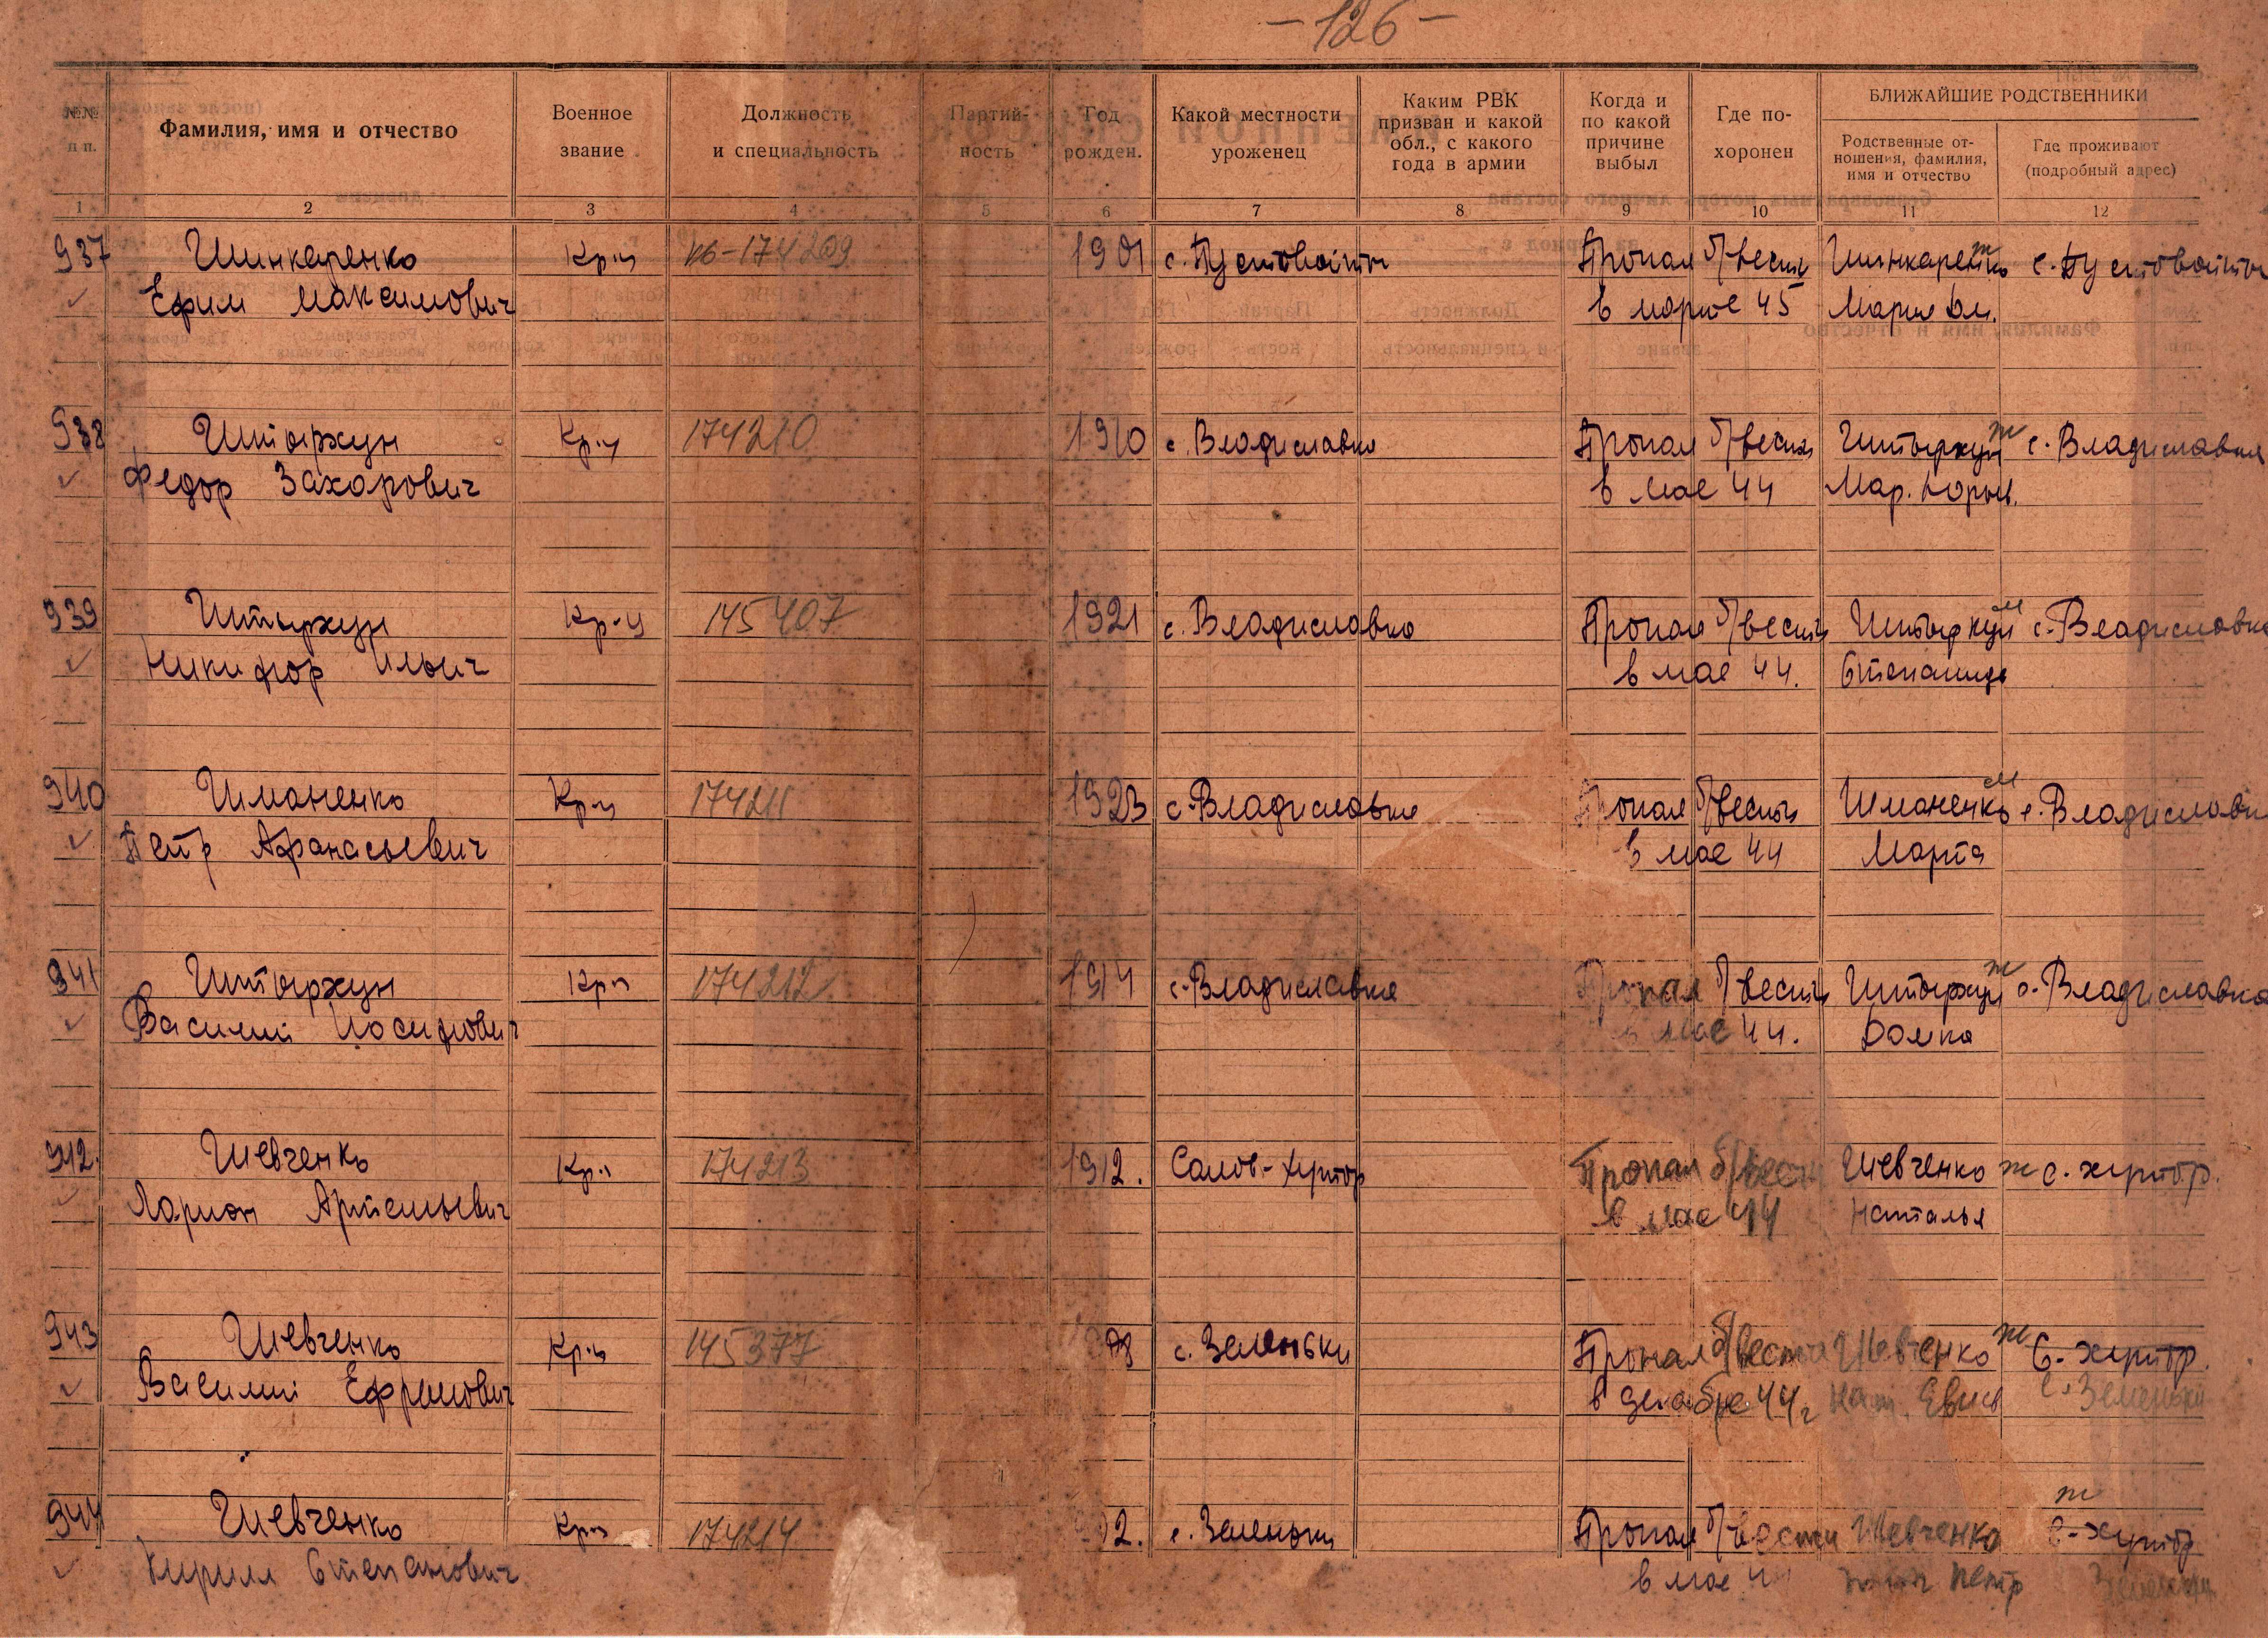 -126-
№№ п п.
Фамилия, имя и отчество
Военное звание
Должность и специальность
Партий- ность
Год рожден.
Какой местности уроженец
Каким РВК призван и какой обл., с какого года в армии
Когда и по какой причине выбыл
Где по- хоронен
БЛИЖАЙШИЕ РОДСТВЕННИКИ
Родственные от- ношения, фамилия, имя и отчество
Где проживают (подробный адрес)
1 2 3 4 5 6 7 8 9 10 11 12
937 Шинкаренко Кр-ц 174209 1901 с. Пустовойты Пропал б/вести Шинкаренко ж с. Пустовойты
Ефим Максимович в марте 45 Мария
938 Штыркун Кр-ц 174210 1910 с. Владиславка Пропал б/вести Штыркун ж с. Владиславка
Федор Захарович в мае 44 Мар.
939 Штыркун Кр-ц 145407 1921 с. Владиславка Пропал б/вести Штыркун м с. Владиславка
Никифор Ильич в мае 44. Степанида
940 Шманенко Кр-ц 174211 1923 с. Владиславка Пропал б/вести Шманенко м с. Владиславка
Петр Афанасьевич в мае 44 Марта
941 Штыркун Кр-ц 174212 1914 с. Владиславка Пропал б/вести Штыркун ж с. Владиславка
Василий Иосифович в мае 44. Домка
942. Шевченко Кр-ц 174213 1912. Салов-хутор Пропал б/вести Шевченко ж С. хутор.
Ларион Артемьевич в мае 44 Наталья
943 Шевченко Кр-ц 145377 с. Зеленьки Пропал б/вести Шевченко ж С-хутор.
Василий Ефремович в декабре 44г Нат. с. Зеленьки
944 Шевченко Кр-ц 174214 с. Зеленьки Пропал б/вести Шевченко ж С-хутор
Кирилл Степанович в мае Петр